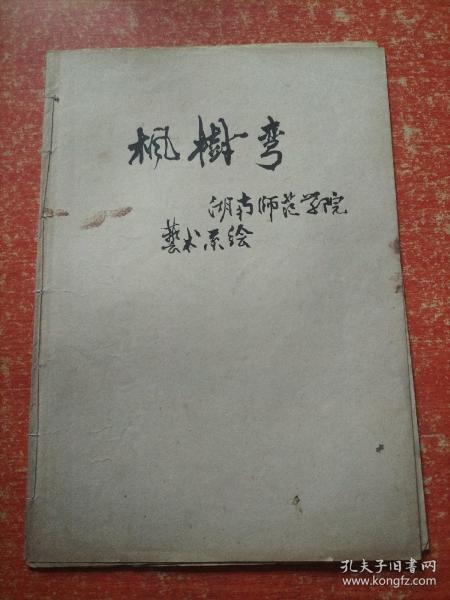 枫樹弯
湖南师范学院
藝术系绘
孔夫子旧书网
www.kongfz.com